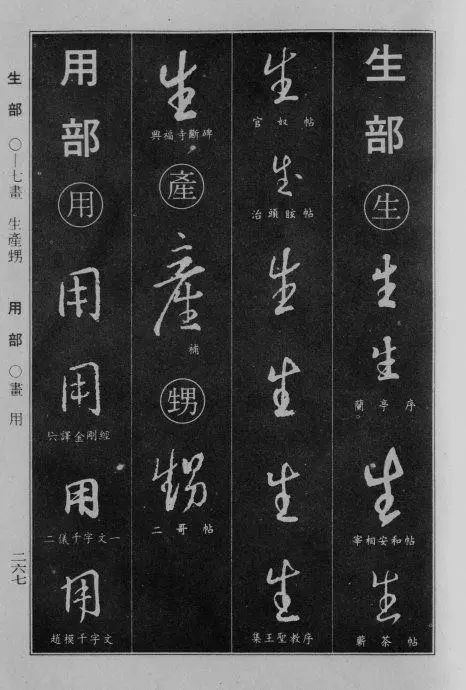 生部
生
生
生
蘭亭序
生
宰相安和帖
生
蘄茶帖
生
官奴帖
生
治頭眩帖
生
生
生
生
集王聖教序
生
興福寺斷碑
產
產
補
甥
甥
二哥帖
用部
用
用
用
六譯金剛經
用
二儀千字文一
用
趙模千字文
生部 ○—七畫 生產甥 用部 ○畫 用
二六七